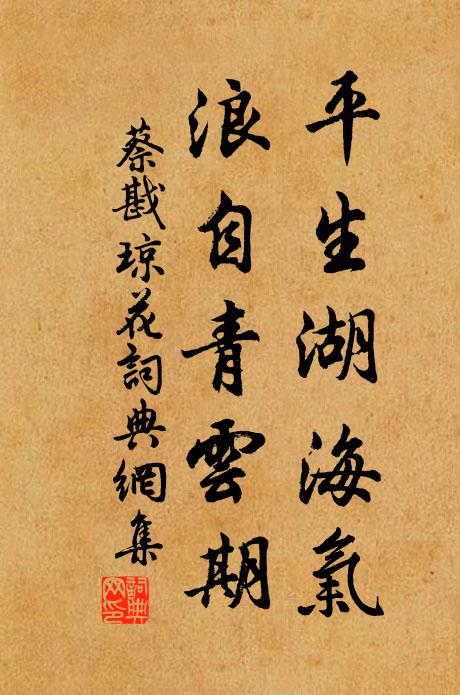 平生湖海氣
浪自青雲期
蔡戡琼花詞典網集
詞典網印